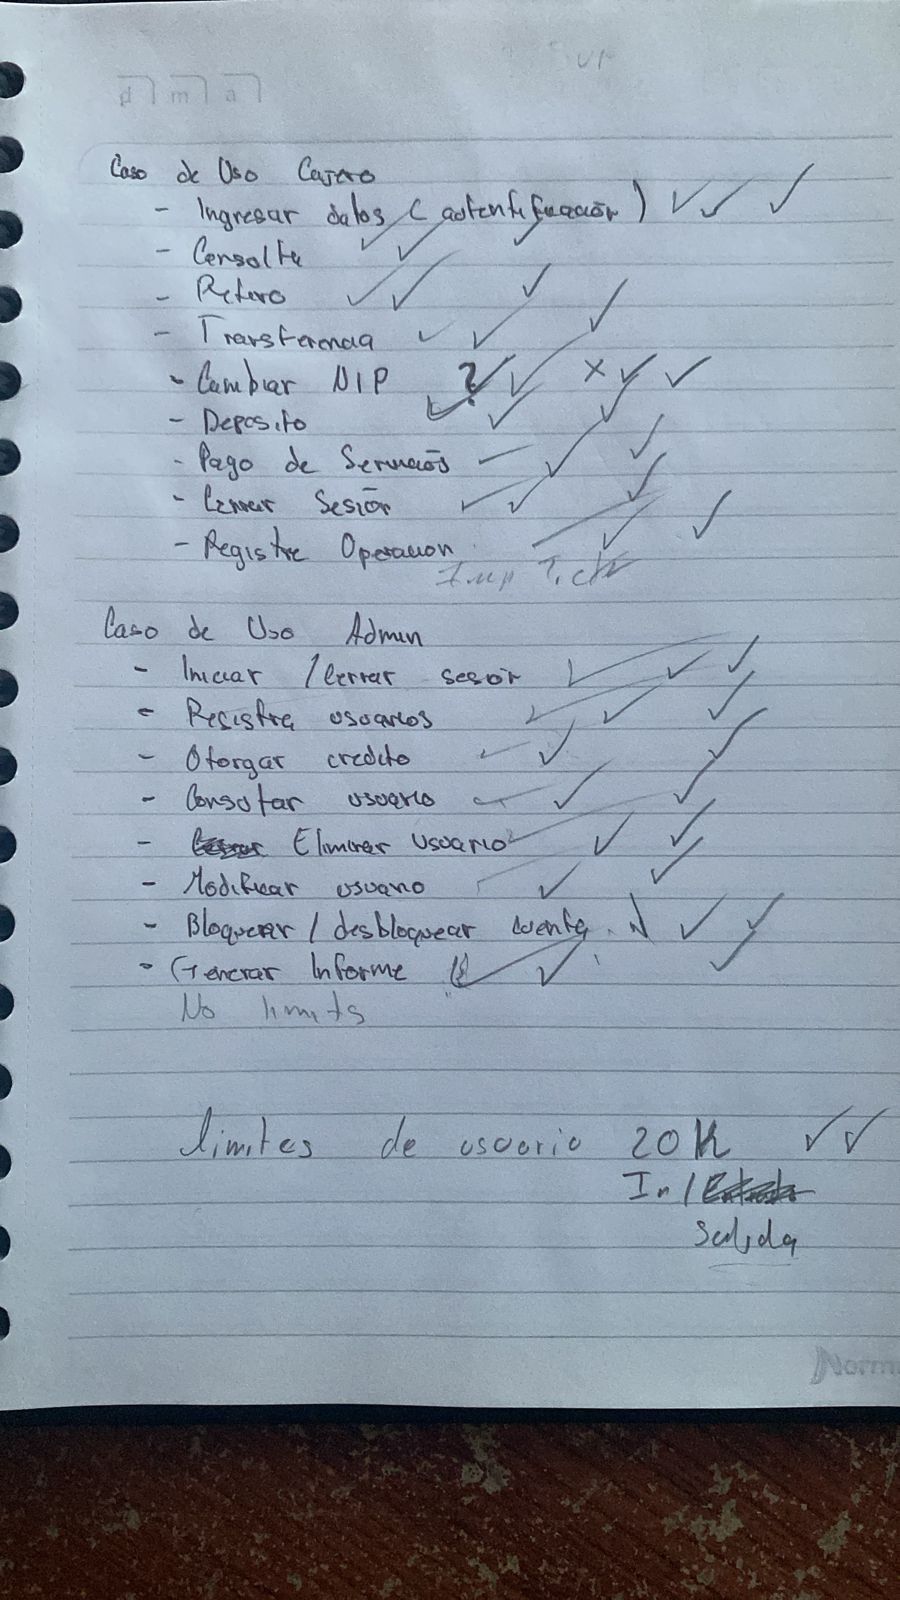 d m a
Caso de Uso Cajero
- Ingresar datos (autentificación)
- Consulta
- Retiro
- Transferencia
- Cambiar NIP ?
- Deposito
- Pago de Servicios
- Cerrar Sesión
- Registre Operacion
Imp Tick
Caso de Uso Admin
- Iniciar / Cerrar sesión
- Registra usuarios
- Otorgar credito
- Consultar usuario
- Eliminar usuario
- Modificar usuario
- Bloquear / desbloquear cuenta.
- Generar Informe
No limits
limites de usuario 20K
In /
Salida
Norma